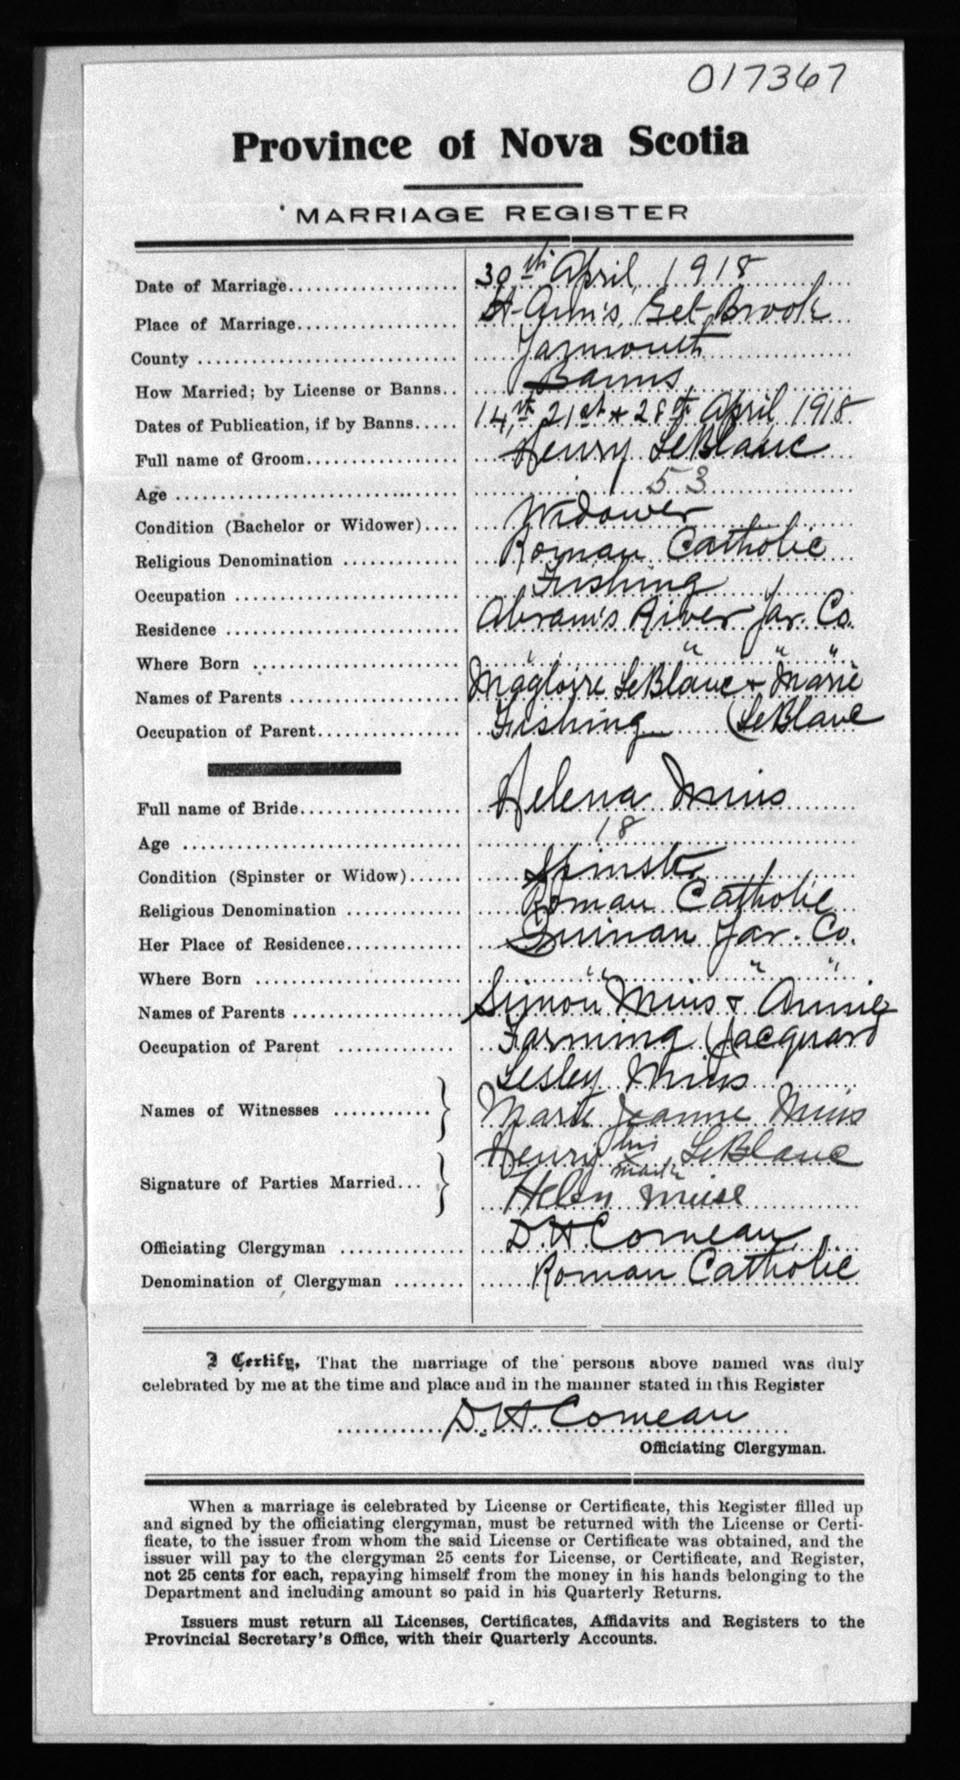 017367
Province of Nova Scotia
MARRIAGE REGISTER
Date of Marriage.................... 30th April 1918
Place of Marriage................... St-Ann's, Eel Brook
County .............................. Yarmouth
How Married; by License or Banns.. Banns
Dates of Publication, if by Banns..... 14th, 21st + 28th April 1918
Full name of Groom.................. Henry LeBlanc
Age .................................. 53
Condition (Bachelor or Widower).... Widower
Religious Denomination .............. Roman Catholic
Occupation .......................... Fishing
Residence ........................... Abram's River Yar. Co.
Where Born ........................ " " " "
Names of Parents .................... Magloire LeBlanc + Marie
Occupation of Parent................. Fishing (LeBlanc
Full name of Bride................... Helena Muis
Age .................................. 18
Condition (Spinster or Widow)...... Spinster
Religious Denomination .............. Roman Catholic
Her Place of Residence.............. Quinan Yar. Co.
Where Born ......................... " " "
Names of Parents .................... Simon Muis + Annie
Occupation of Parent .............. Farming (Jacquard
Lesley Muis
Names of Witnesses ........... } Marie Jeanne Muis
Henry his mark LeBlanc
Signature of Parties Married... } Helen Muise
Officiating Clergyman ............... D. H Comeau
Denomination of Clergyman ........ Roman Catholic
I Certify, That the marriage of the persons above named was duly
celebrated by me at the time and place and in the manner stated in this Register
D. H. Comeau
Officiating Clergyman.
When a marriage is celebrated by License or Certificate, this Register filled up
and signed by the officiating clergyman, must be returned with the License or Certi-
ficate, to the issuer from whom the said License or Certificate was obtained, and the
issuer will pay to the clergyman 25 cents for License, or Certificate, and Register,
not 25 cents for each, repaying himself from the money in his hands belonging to the
Department and including amount so paid in his Quarterly Returns.
Issuers must return all Licenses, Certificates, Affidavits and Registers to the
Provincial Secretary's Office, with their Quarterly Accounts.